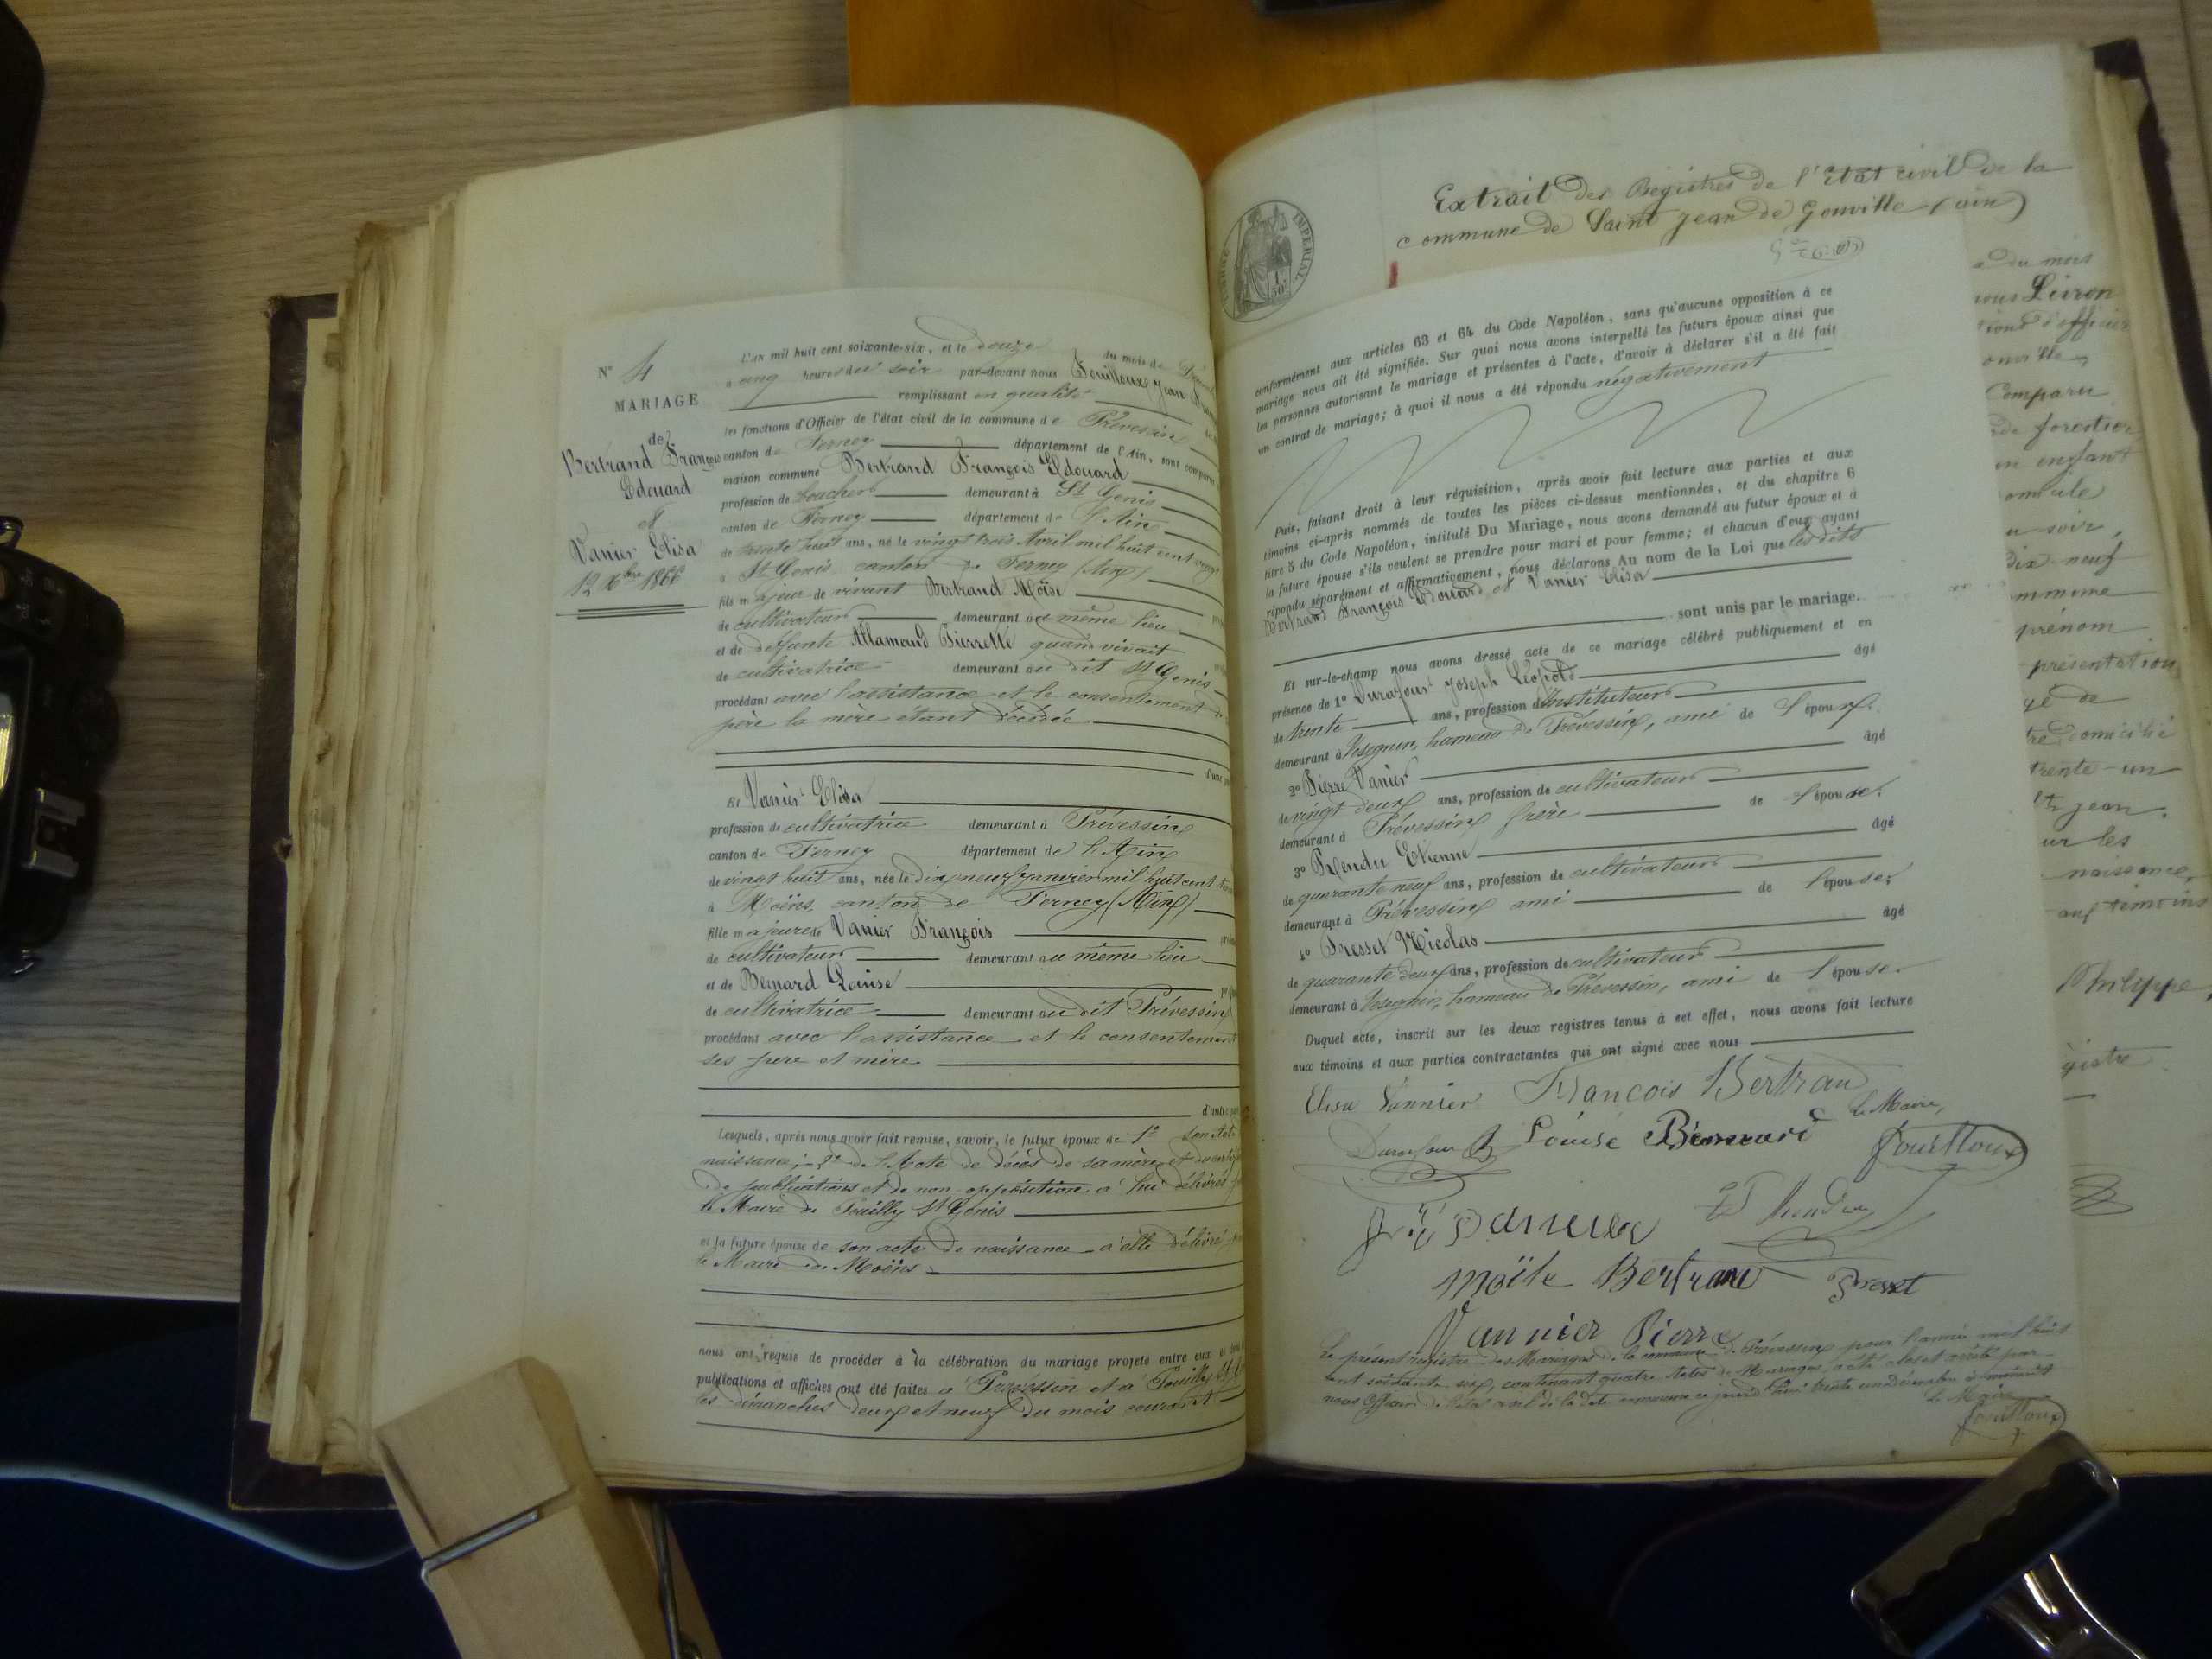 N° 4
MARIAGE
de
Bertrand François
Edouard
et
Vanier Elisa
12 Xbre 1866
L'AN mil huit cent soixante-six, et le douze du mois de
à cinq heures du soir par-devant nous Fouilloux Jean
remplissant en qualité
les fonctions d'Officier de l'état civil de la commune de Prévessin
canton de Ferney département de l'Ain, sont comparus
maison commune Bertrand François Edouard
profession de boucher demeurant à St Genis
canton de Ferney département de l'Ain
de trente huit ans, né le vingt trois Avril mil huit cent vingt
à St Genis canton de Ferney (Ain)
fils majeur de vivant Bertrand Moïse
de cultivateur demeurant au même lieu
et de deffunte Allamand Pierrette quand vivait
de cultivatrice demeurant au dit St Genis
procédant avec l'assistance et le consentement de
père la mère étant décédée
d'une
Et Vanier Elisa
profession de cultivatrice demeurant à Prévessin
canton de Ferney département de l'Ain
de vingt huit ans, née le dix neuf janvier mil huit cent
à Moëns, canton de Ferney (Ain)
fille majeure de Vanier François
de cultivateur demeurant au même lieu
et de Bernard Louise
de cultivatrice demeurant au dit Prévessin
procédant avec l'assistance et le consentement
ses père et mère
d'autre part
Lesquels, après nous avoir fait remise, savoir, le futur époux de 1° son acte
naissance; 2° de l'Acte de décès de sa mère, et du
de publications et de non-opposition à lui délivrés
le Maire de Pouilly St Genis
et la future épouse de son acte de naissance à elle délivré
le Maire de Moëns
nous ont requis de procéder à la célébration du mariage projeté entre eux
publications et affiches ont été faites à Prévessin et à Pouilly St
les dimanches deux et neuf du mois courant
Extrait des Registres de l'Etat civil de la
commune de Saint Jean de Gonville (ain)
TIMBRE IMPERIAL
1f
50c
conformément aux articles 63 et 64 du Code Napoléon, sans qu'aucune opposition à ce
mariage nous ait été signifiée. Sur quoi nous avons interpellé les futurs époux ainsi que
les personnes autorisant le mariage et présentes à l'acte, d'avoir à déclarer s'il a été fait
un contrat de mariage; à quoi il nous a été répondu négativement
Puis, faisant droit à leur réquisition, après avoir fait lecture aux parties et aux
témoins ci-après nommés de toutes les pièces ci-dessus mentionnées, et du chapitre 6
titre 5 du Code Napoléon, intitulé Du Mariage, nous avons demandé au futur époux et à
la future épouse s'ils veulent se prendre pour mari et pour femme; et chacun d'eux ayant
répondu séparément et affirmativement, nous déclarons Au nom de la Loi que les dits
Bertrand François Edouard et Vanier Elisa
sont unis par le mariage.
Et sur-le-champ nous avons dressé acte de ce mariage célébré publiquement et en
présence de 1° Durafour Joseph Léopold âgé
de trente ans, profession d'instituteur
demeurant à Vesegnin, hameau de Prévessin, ami de l'époux.
2° Pierre Vanier âgé
de vingt deux ans, profession de cultivateur
demeurant à Prévessin frère de l'épouse.
3° Rendu Etienne âgé
de quarante neuf ans, profession de cultivateur
demeurant à Prévessin ami de l'épouse.
4° Presset Nicolas âgé
de quarante deux ans, profession de cultivateur
demeurant à Vesegnin, hameau de Prévessin, ami de l'épouse.
Duquel acte, inscrit sur les deux registres tenus à cet effet, nous avons fait lecture
aux témoins et aux parties contractantes qui ont signé avec nous
Elisa Vannier François Bertrand
Le Maire,
Durafour Louise Bernard Fouilloux
Rendu
Moïse Bertrand Presset
Vannier Pierre
Le présent registre des Mariages de la commune de Prévessin pour l'année mil huit
cent soixante six, contenant quatre Actes de Mariages a été clos et arrêté par
nous Officier de l'état civil de la dite commune ce jourd'hui trente un décembre à minuit
Le Maire
Fouilloux
du mois
nous Livron
onville
Comparu
forestier
un enfant
omicile
soir,
dix-neuf
mmune
prénom
présentation
de
domicilié
trente-un
St jean.
ur les
naissance,
témoins
Philippe,
gistre